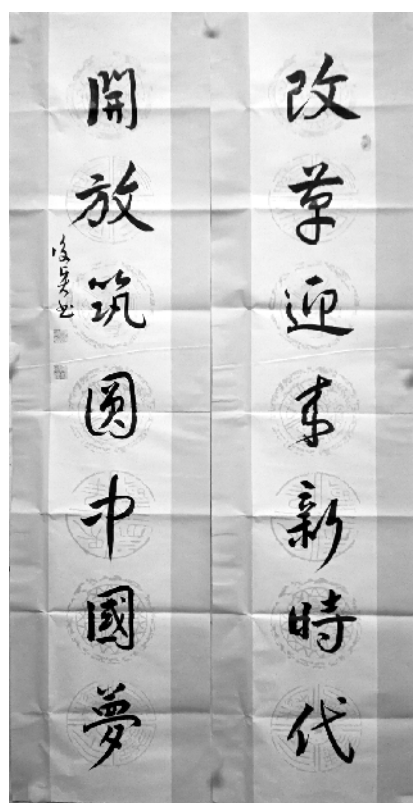 改革迎来新時代
開放筑圆中國夢